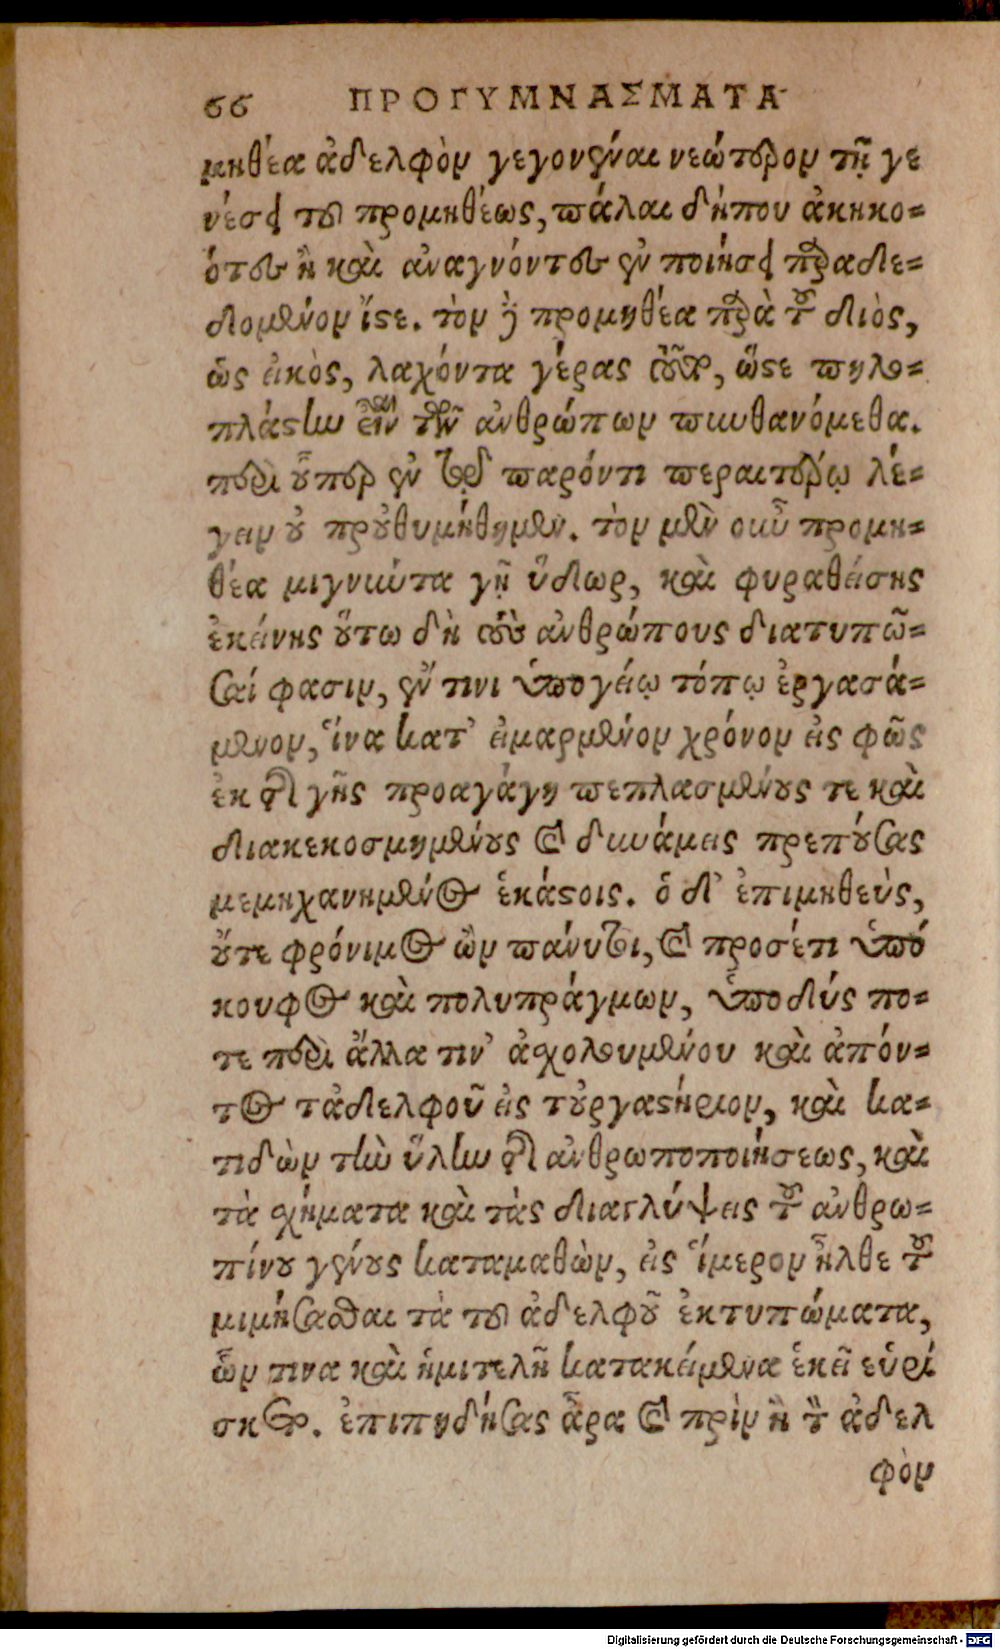 66 ΠΡΟΓΥΜΝΑΣΜΑΤΑ
μηθέα ἀδελφὸν γεγονέναι νεώτερον τῇ γε
νέσει τοῦ προμηθέως, πάλαι δήπου ἀκηκο=
ότες ἢ καὶ ἀναγνόντες ἐν ποιήσει παραδε=
δομένον ἴστε. τὸν δὲ προμηθέα παρὰ τοῦ διὸς,
ὡς εἰκὸς, λαχόντα γέρας τοῦτο, ὥστε πηλο=
πλάστην εἶναι τῶν ἀνθρώπων πυνθανόμεθα.
περὶ οὗπερ ἐν τῷ παρόντι περαιτέρω λέ=
γειν οὐ προὐθυμήθημεν. τὸν μὲν οὖν προμη=
θέα μιγνύντα γῇ ὕδωρ, καὶ φυραθείσης
ἐκείνης οὕτω δὴ τοὺς ἀνθρώπους διατυπῶ=
σαί φασιν, ἔν τινι ὑπογείῳ τόπῳ ἐργασά=
μενον, ἵνα κατ' εἱμαρμένον χρόνον εἰς φῶς
ἐκ τῆς γῆς προαγάγῃ πεπλασμένους τε καὶ
διακεκοσμημένους καὶ δυνάμεις πρεπούσας
μεμηχανημένος ἑκάστοις. ὁ δ' ἐπιμηθεὺς,
οὔτε φρόνιμος ὢν πάνυ τι, καὶ προσέτι ὑπό
κουφος καὶ πολυπράγμων, ὑποδύς πο=
τε περὶ ἄλλα τιν' ἀσχολουμένου καὶ ἀπόν=
τος τἀδελφοῦ εἰς τοὐργαστήριον, καὶ κα=
τιδὼν τὴν ὕλην τῆς ἀνθρωποποιήσεως, καὶ
τὰ σχήματα καὶ τὰς διαγλύψεις τοῦ ἀνθρω=
πίνου γένους καταμαθὼν, εἰς ἵμερον ἦλθε τοῦ
μιμήσασθαι τὰ τοῦ ἀδελφοῦ ἐκτυπώματα,
ὧν τινα καὶ ἡμιτελῆ κατακείμενα ἐκεῖ εὑρί
σκει. ἐπιπηδήσας ἄρα καὶ πρὶν ἢ τὸν ἀδελ
φὸν
Digitalisierung gefördert durch die Deutsche Forschungsgemeinschaft - DFG